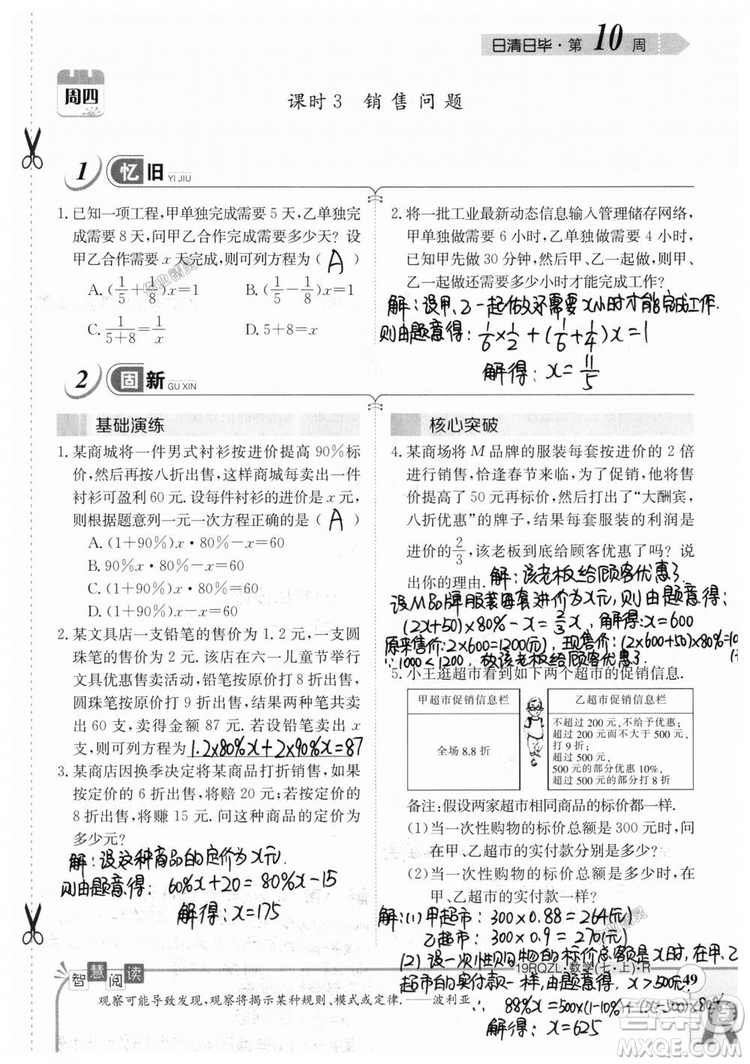 日清日毕·第10周
周四
课时3 销售问题
1 忆旧 YI JIU
1. 已知一项工程,甲单独完成需要5天,乙单独完
成需要8天,问甲乙合作完成需要多少天?设
甲乙合作完成需要x天完成,则可列方程为(A)
A. (1/5+1/8)x=1 B. (1/5-1/8)x=1
C. 1/(5+8)=1/x D. (5+8)x=1
2. 将一批工业最新动态信息输入管理储存网络,
甲单独做需要6小时,乙单独做需要4小时,
已知甲先做30分钟,然后甲、乙一起做,则甲、
乙一起做还需要多少小时才能完成工作?
解:设甲、乙一起做还需要x小时才能完成工作.
则由题意得:1/6×1/2+(1/6+1/4)x=1
解得:x=11/5
2 固新 GU XIN
基础演练
1. 某商城将一件男式衬衫按进价提高90%标
价,然后再按八折出售,这样商城每卖出一件
衬衫可盈利60元.设每件衬衫的进价是x元,
则根据题意列一元一次方程正确的是(A)
A. (1+90%)x·80%-x=60
B. (1+90%)x·80%=60
C. (1+90%)x-x=60
D. (1+90%)x=60
2. 某文具店一支铅笔的售价为1.2元,一支圆
珠笔的售价为2元.该店在六一儿童节举行
文具优惠售卖活动,铅笔按原价打8折出售,
圆珠笔按原价打9折出售,结果两种笔共卖
出60支,卖得金额87元.若设铅笔卖出x
支,则可列方程为1.2×80%x+2×90%x=87
3. 某商店因换季决定将某商品打折销售,如果
按定价的6折出售,将赔20元,而按定价的
8折出售,将赚15元.问这种商品的定价为
多少元?
解:设这种商品的定价为x元.
则由题意得:60%x+20=80%x-15
解得:x=175
核心突破
4. 某商场将M品牌的服装每套按进价的2倍
进行销售,恰逢春节来临,为了促销,他将售价
提高了50元再标价,打出了“大酬宾,
八折优惠”的牌子,结果每套服装的利润是
进价的2/3,该老板到底给顾客优惠了吗?说
出你的理由.解:该老板给顾客优惠了.
设M品牌服装每套进价为x元,则由题意得:
(2x+50)×80%-x=2/3x,解得:x=600
原来售价:2×600=1200(元),现售价:(2×600+50)×80%=10
∴1000<1200,故该老板给顾客优惠了.
5. 小王逛超市看到如下两个超市的促销信息.
甲超市促销信息栏
全场8.8折
乙超市促销信息栏
不超过200元,不给予优惠;
超过200元而不大于500元,
打9折;
超过500元的,
500元的部分优惠10%
超过500元的部分打8折
备注:假设两家超市相同商品的标价都一样.
(1)当一次性购物的标价总额是300元时,问
甲、乙超市的实付款分别是多少?
(2)当一次性购物的标价总额是多少时,在
甲、乙超市的实付款一样?
解:(1)甲超市:300×0.88=264(元)
乙超市:300×0.9=270(元)
(2)设一次性购物的标价总额是x时,在甲乙
超市的实付款一样,由题意得:x>500
∴88%x=500×(1-10%)+(x-500)×80%
解得:x=625
19RQZL·数学(七·上)·R 49
智慧阅读
观察可能导致发现,观察将揭示某种规则、模式或定律.——波利亚